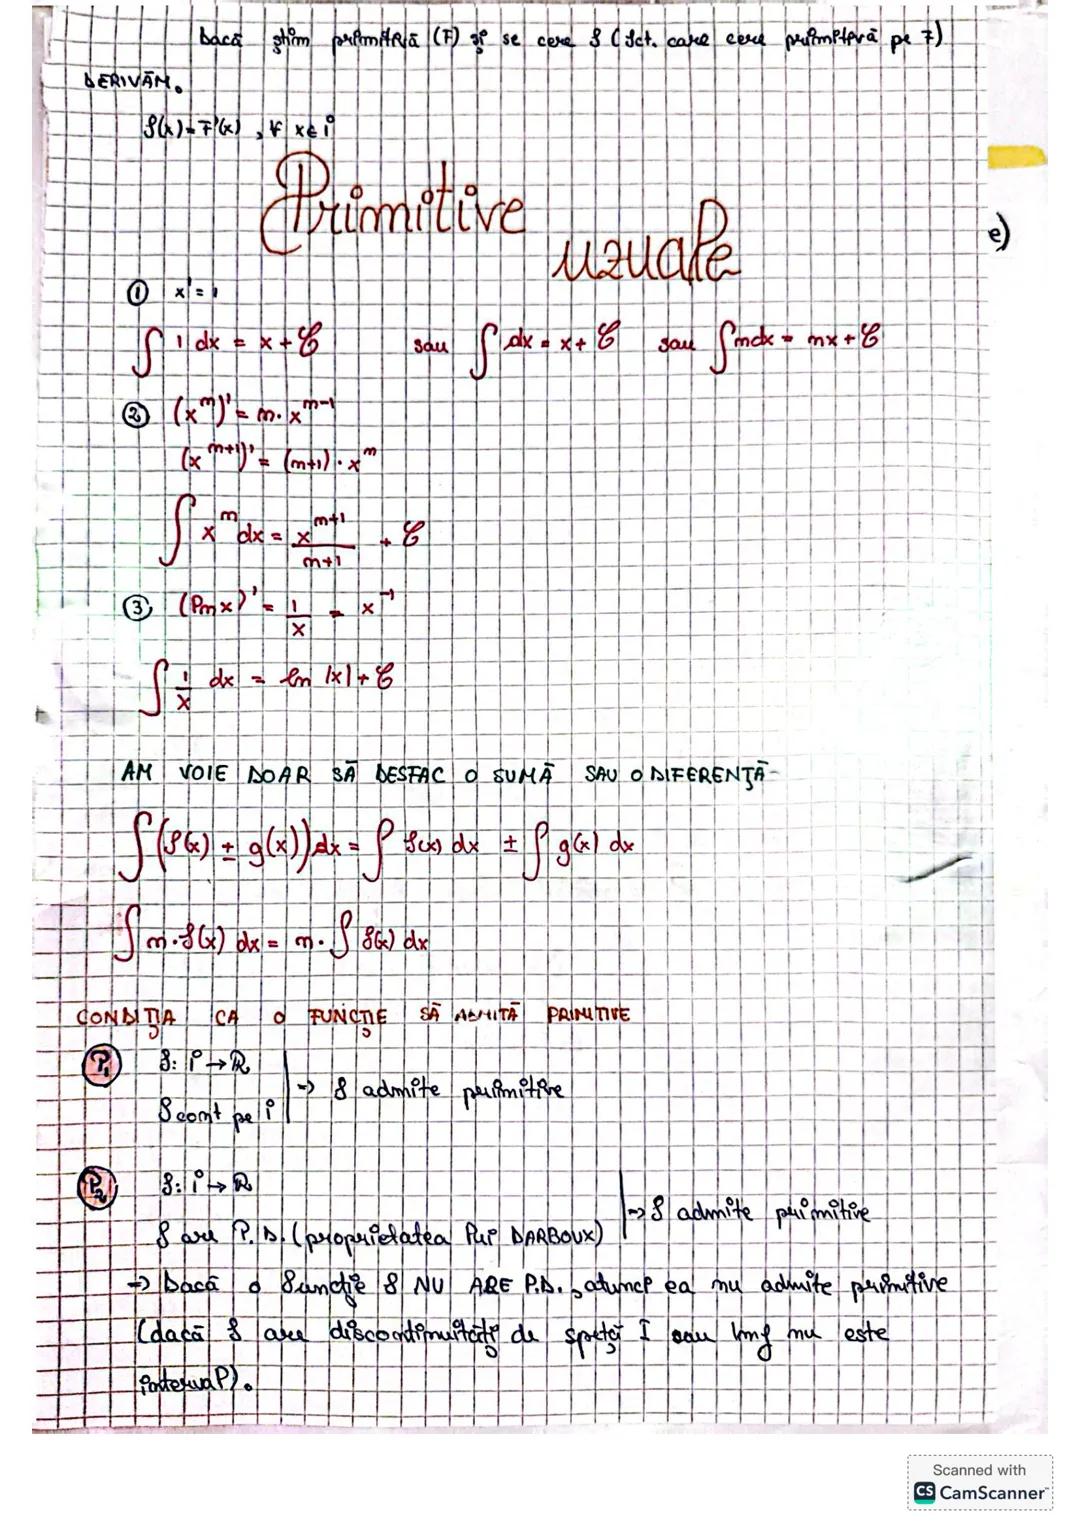 Dacă știm primitiva (F) și se cere f (fct. care cere primitivă pe F)
DERIVĂM.
f(x) = F'(x), ∀ x ∈ i
Primitive
uzuale
e)
① x' = 1
∫ 1 dx = x + C sau ∫ dx = x + C sau ∫ m dx = mx + C
② (x^m)' = m · x^(m-1)
(x^(m+1))' = (m+1) · x^m
∫ x^m dx = x^(m+1)/(m+1) + C
③ (ln x)' = 1/x = x^(-1)
∫ 1/x dx = ln |x| + C
AM VOIE DOAR SĂ DESFAC O SUMĂ SAU O DIFERENȚĂ
∫ (f(x) ± g(x)) dx = ∫ f(x) dx ± ∫ g(x) dx
∫ m · f(x) dx = m · ∫ f(x) dx
CONDIȚIA CA O FUNCȚIE SĂ ADMITĂ PRIMITIVE
P₁ f: i → R
f cont pe i | => f admite primitive
P₂ f: i → R
f are P.D. (proprietatea lui DARBOUX) | => f admite primitive
=> Dacă o funcție f NU ARE P.D., atunci ea nu admite primitive
(dacă f are discontinuități de speță I sau Imf nu este
interval).
Scanned with
CS CamScanner